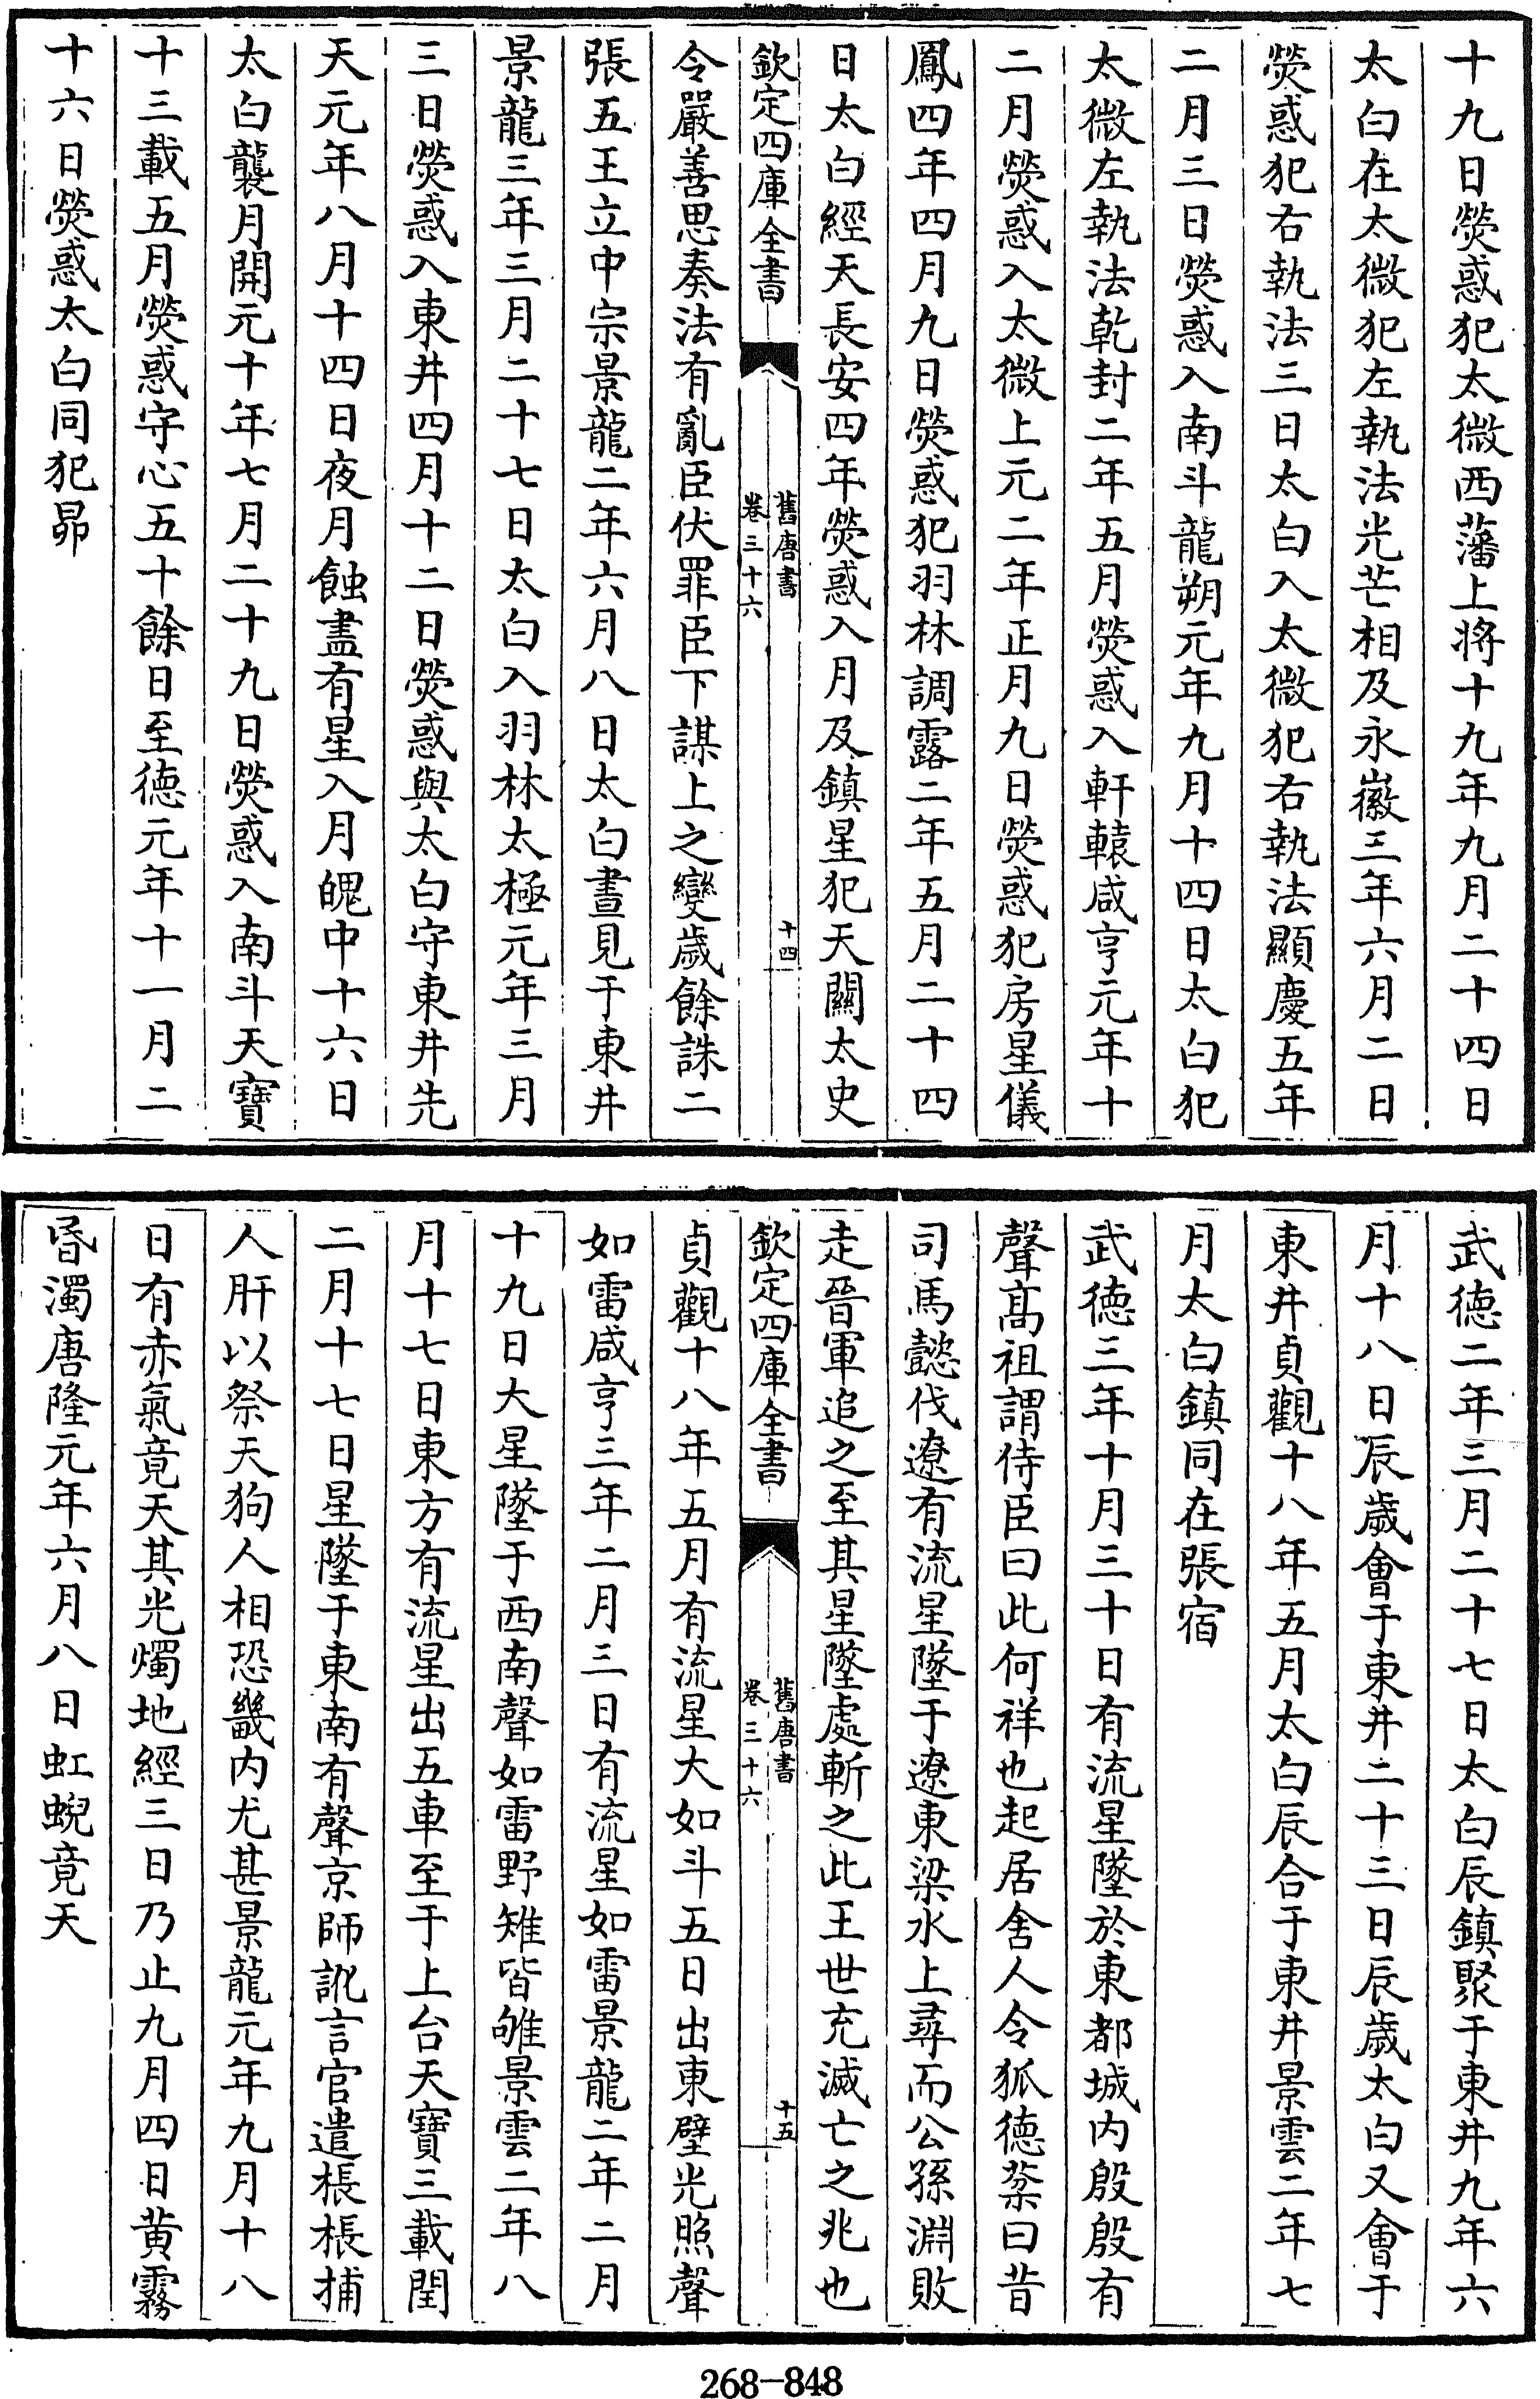 十九日熒惑犯太微西藩上將十九年九月二十四日
太白在太微犯左執法光芒相及永徽三年六月二日
熒惑犯右執法三日太白入太微犯右執法顯慶五年
二月三日熒惑入南斗龍朔元年九月十四日太白犯
太微左執法乾封二年五月熒惑入軒轅咸亨元年十
二月熒惑入太微上元二年正月九日熒惑犯房星儀
鳳四年四月九日熒惑犯羽林調露二年五月二十四
日太白經天長安四年熒惑入月及鎮星犯天關太史
欽定四庫全書
舊唐書
卷三十六
十四
令嚴善思奏法有亂臣伏罪臣下謀上之變歲餘誅二
張五王立中宗景龍二年六月八日太白晝見于東井
景龍三年三月二十七日太白入羽林太極元年三月
三日熒惑入東井四月十二日熒惑與太白守東井先
天元年八月十四日夜月蝕盡有星入月魄中十六日
太白襲月開元十年七月二十九日熒惑入南斗天寶
十三載五月熒惑守心五十餘日至德元年十一月二
十六日熒惑太白同犯昴
武德二年三月二十七日太白辰鎮聚于東井九年六
月十八日辰歲會于東井二十三日辰歲太白又會于
東井貞觀十八年五月太白辰合于東井景雲二年七
月太白鎮同在張宿
武德三年十月三十日有流星墜於東都城内殷殷有
聲髙祖謂侍臣曰此何祥也起居舍人令狐德棻曰昔
司馬懿伐遼有流星墜于遼東梁水上尋而公孫淵敗
走晉軍追之至其星墜處斬之此王世充滅亡之兆也
欽定四庫全書
舊唐書
卷三十六
十五
貞觀十八年五月有流星大如斗五日出東壁光照聲
如雷咸亨三年二月三日有流星如雷景龍二年二月
十九日大星墜于西南聲如雷野雉皆雊景雲二年八
月十七日東方有流星出五車至于上台天寶三載閏
二月十七日星墜于東南有聲京師訛言官遣棖棖捕
人肝以祭天狗人相恐畿内尤甚景龍元年九月十八
日有赤氣竟天其光燭地經三日乃止九月四日黄霧
昏濁唐隆元年六月八日虹蜺竟天
268-848